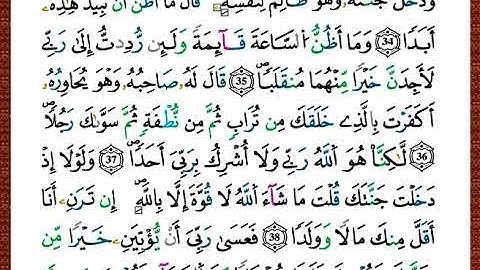 وَدَخَلَ جَنَّتَهُۥ وَهُوَ ظَالِمٌ لِّنَفْسِهِۦ قَالَ مَا أَظُنُّ أَن تَبِيدَ هَٰذِهِۦ
أَبَدًا 34 وَمَا أَظُنُّ اُ۬لسَّاعَةَ قَآئِمَةً وَلَئِن رُّدِدتُّ إِلَىٰ رَبِّے
لَأَجِدَنَّ خَيْرًا مِّنْهُمَا مُنقَلَبًا 35 قَالَ لَهُۥ صَاحِبُهُۥ وَهُوَ يُحَاوِرُهُۥ
أَكَفَرْتَ بِالَّذِے خَلَقَكَ مِن تُرَابٍ ثُمَّ مِن نُّطْفَةٍ ثُمَّ سَوَّىٰكَ رَجُلًا
36 لَّٰكِنَّا هُوَ اَ۬للَّهُ رَبِّے وَلَا أُشْرِكُ بِرَبِّيَ أَحَدًا 37 وَلَوْلَا إِذ
دَخَلْتَ جَنَّتَكَ قُلْتَ مَا شَآءَ اَ۬للَّهُ لَا قُوَّةَ إِلَّا بِاللَّهِ إِن تَرَنِۦ أَنَا
أَقَلَّ مِنكَ مَالًا وَوَلَدًا 38 فَعَسَىٰ رَبِّيَ أَنْ يُّؤْتِيَنِۦ خَيْرًا مِّن